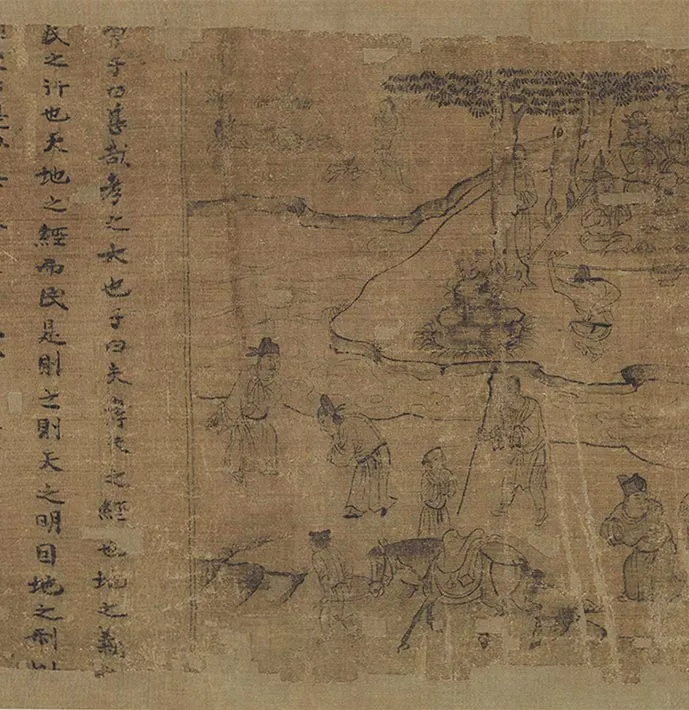 曾子曰甚哉孝之大也子曰夫孝天之經也地之義
民之行也天地之經而民是則之則天之明因地之利以